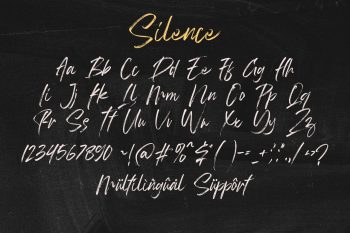 Silence
Aa Bb Cc Dd Ee Ff Gg Hh
Ii Jj Kk Ll Mm Nn Oo Pp Qq
Rr Ss Tt Uu Vv Ww Xx Yy Zz
1234567890 ~!@#%^&$()-=_+:;.,/<>?
Mültilingûál Süppôrt